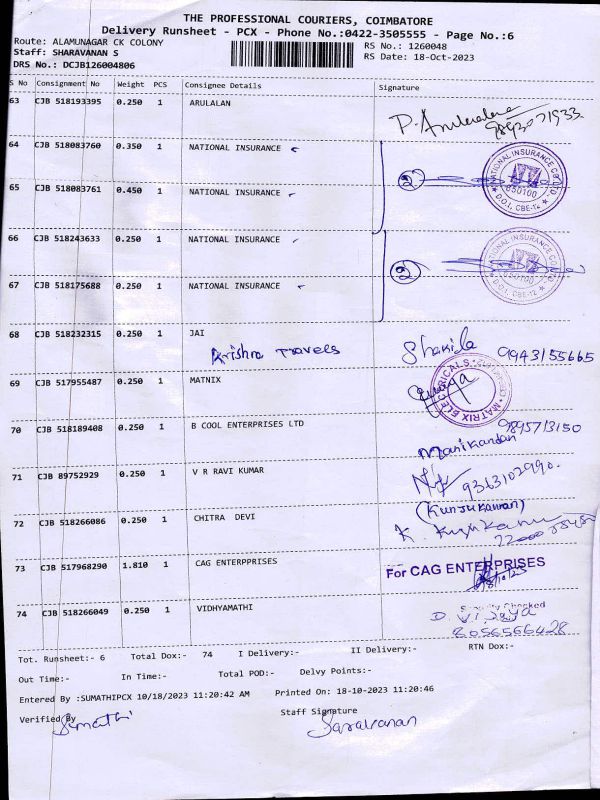 THE PROFESSIONAL COURIERS, COIMBATORE
Delivery Runsheet - PCX - Phone No.:0422-3505555 - Page No.:6
Route: ALAMUNAGAR CK COLONY
RS No.: 1260048
Staff: SHARAVANAN S
RS Date: 18-Oct-2023
DRS No.: DCJB126004806
S No Consignment No Weight PCS Consignee Details Signature
63 CJB 518193395 0.250 1 ARULALAN
P. Arulalan
9893071933
64 CJB 518083760 0.350 1 NATIONAL INSURANCE
2
NATIONAL INSURANCE CO LTD
650100
D.O.I, CBE-12
65 CJB 518083761 0.450 1 NATIONAL INSURANCE
66 CJB 518243633 0.250 1 NATIONAL INSURANCE
2
NATIONAL INSURANCE CO LTD
650100
D.O.I, CBE-12
67 CJB 518175688 0.250 1 NATIONAL INSURANCE
68 CJB 518232315 0.250 1 JAI
Krishna Travels
Shakila 9943155665
69 CJB 517955487 0.250 1 MATNIX
MATRIX ELECTRICALS
70 CJB 518189408 0.250 1 B COOL ENTERPRISES LTD
9895713150
Manikandan
71 CJB 89752929 0.250 1 V R RAVI KUMAR
9363102990.
(Kunjukannan)
72 CJB 518266086 0.250 1 CHITRA DEVI
73 CJB 517968290 1.810 1 CAG ENTERPPRISES
For CAG ENTERPRISES
74 CJB 518266049 0.250 1 VIDHYAMATHI
Checked
D. Vijaya
8056566428
Tot. Runsheet:- 6 Total Dox:- 74 I Delivery:- II Delivery:- RTN Dox:-
Out Time:- In Time:- Total POD:- Delvy Points:-
Entered By :SUMATHIPCX 10/18/2023 11:20:42 AM Printed On: 18-10-2023 11:20:46
Verified By Staff Signature
Sumathi
Saravanan